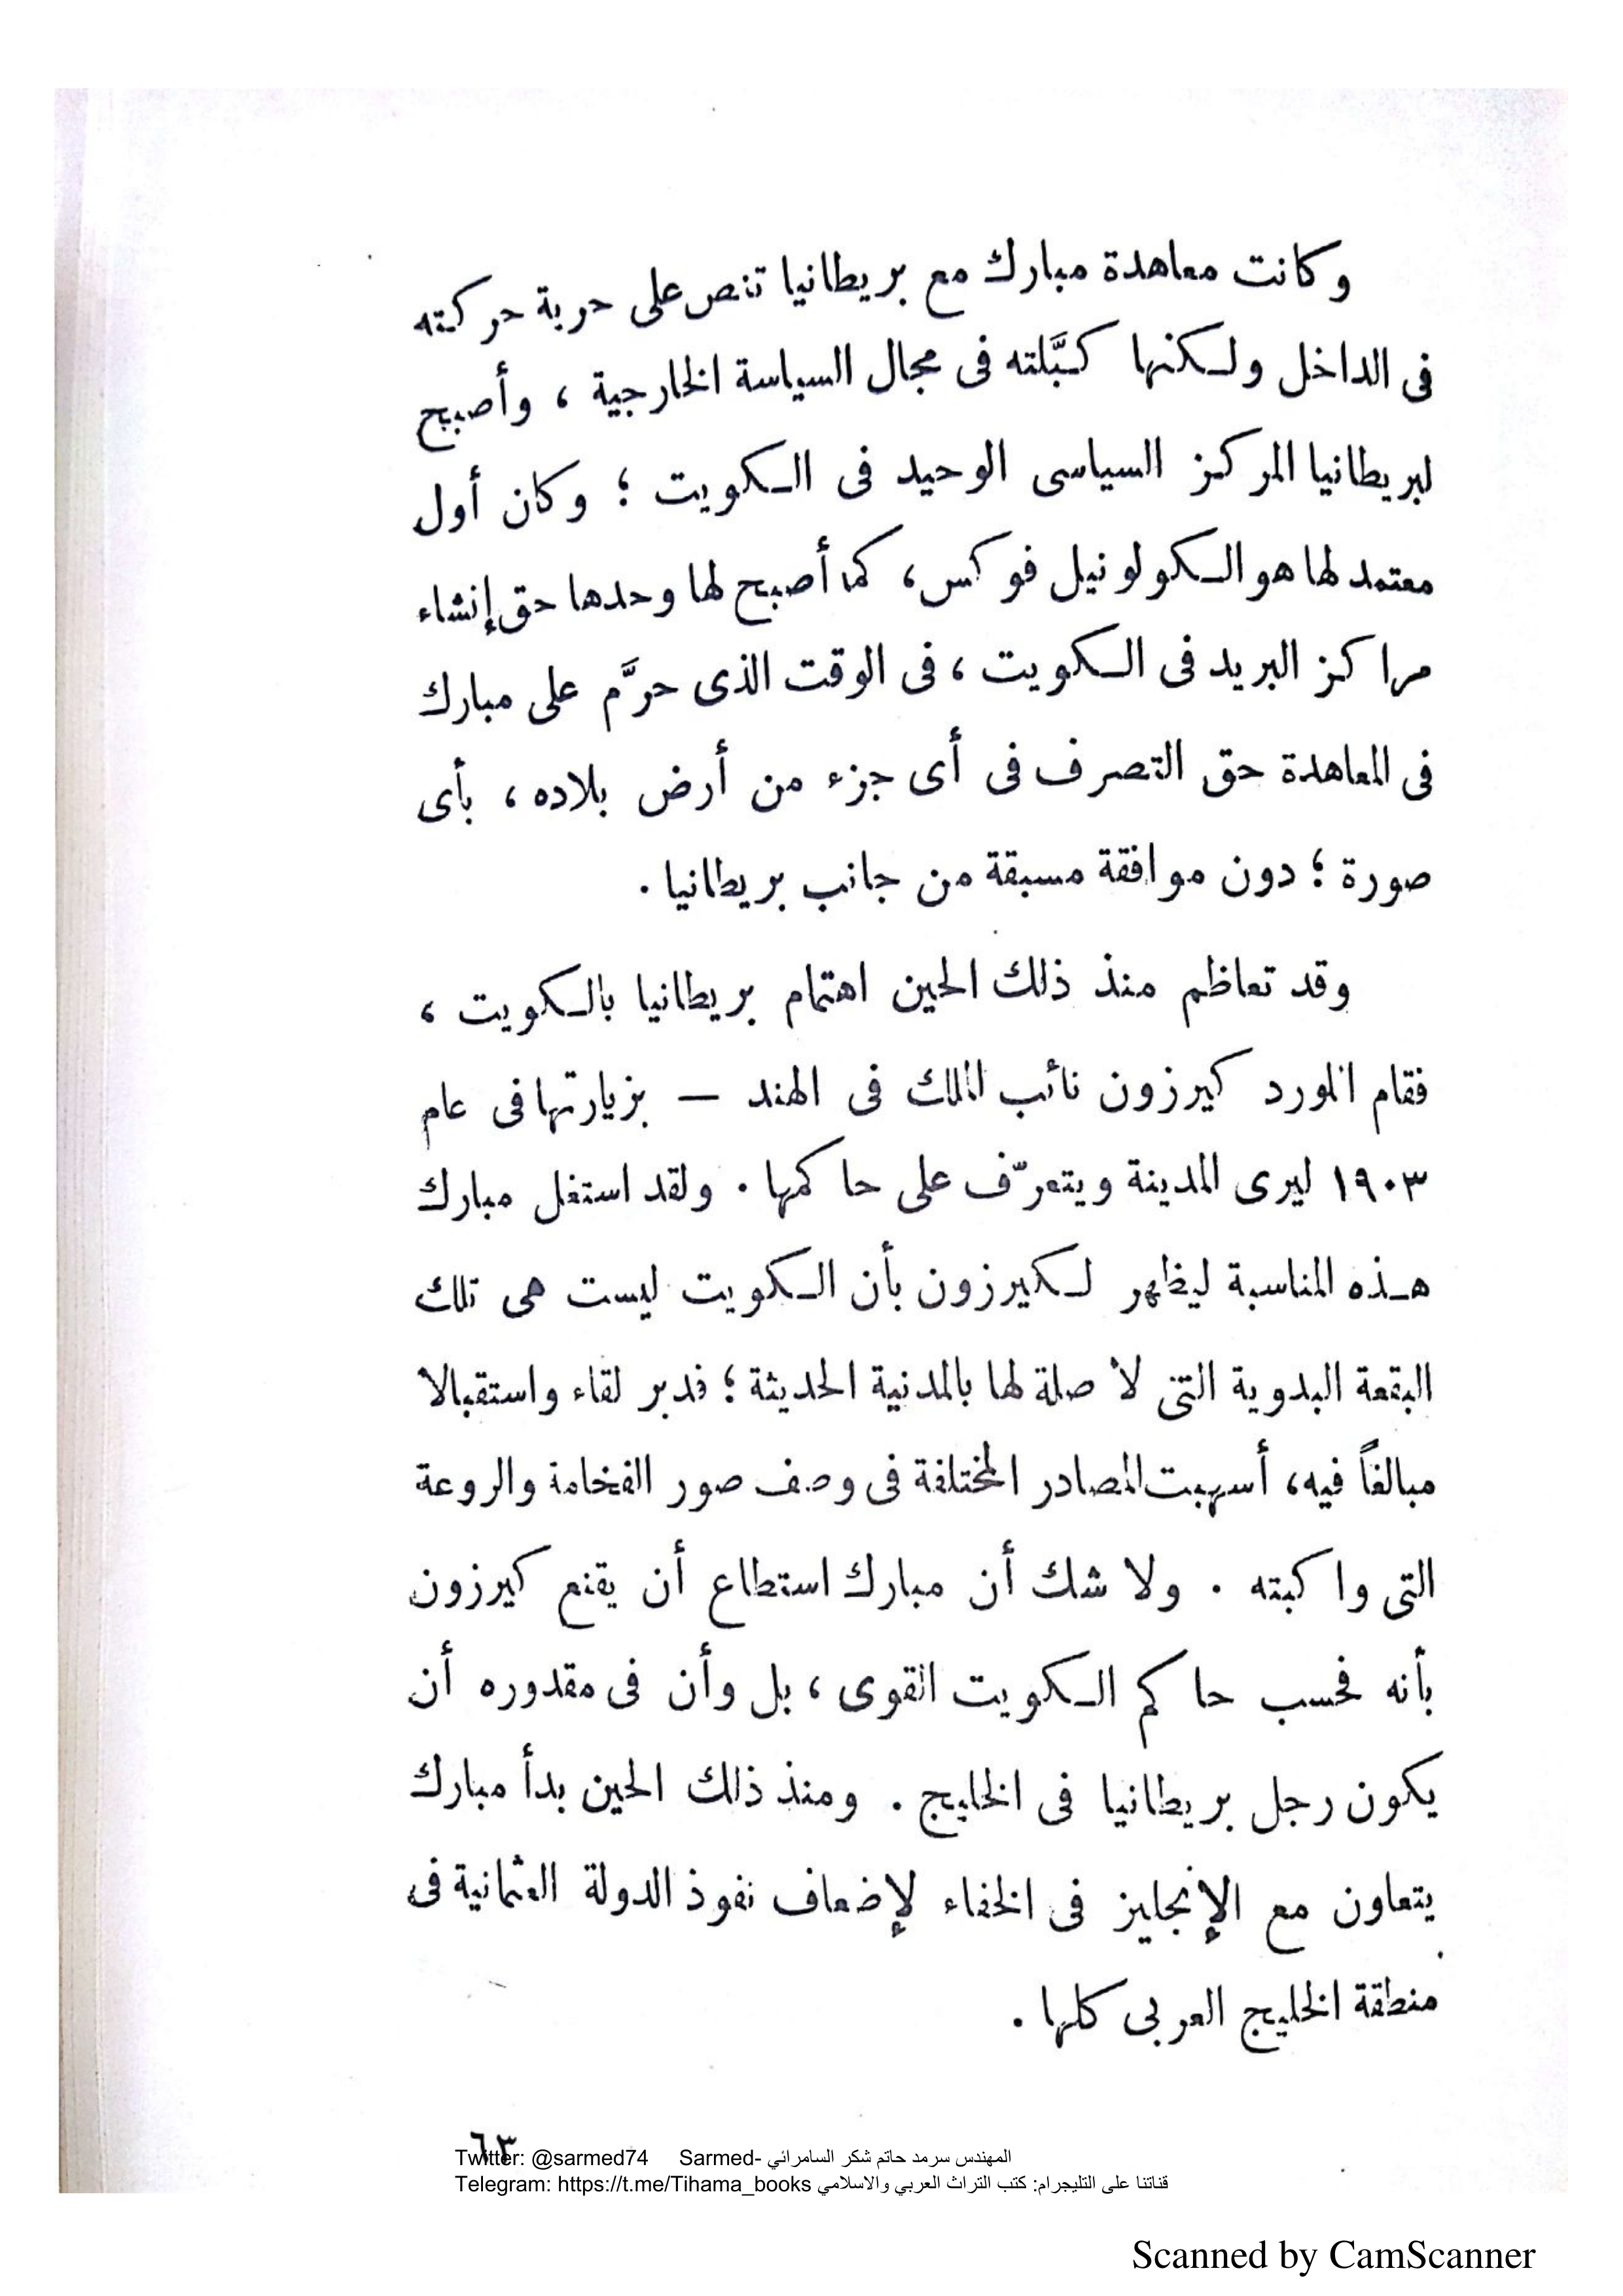 وكانت معاهدة مبارك مع بريطانيا تنص على حرية حركته
فى الداخل ولكنها كبَّلته فى مجال السياسة الخارجية ، وأصبح
لبريطانيا المركز السياسى الوحيد فى الكويت ؛ وكان أول
معتمد لها هو الكولونيل فوكس، كما أصبح لها وحدها حق إنشاء
مراكز البريد فى الكويت ، فى الوقت الذى حرَّم على مبارك
فى المعاهدة حق التصرف فى أى جزء من أرض بلاده ، بأى
صورة ؛ دون موافقة مسبقة من جانب بريطانيا .
وقد تعاظم منذ ذلك الحين اهتمام بريطانيا بالكويت ،
فقام اللورد كيرزون نائب الملك فى الهند — بزيارتها فى عام
١٩٠٣ ليرى المدينة ويتعرّف على حاكمها . ولقد استغل مبارك
هذه المناسبة ليظهر لكيرزون بأن الكويت ليست هى تلك
البقعة البدوية التى لا صلة لها بالمدنية الحديثة ؛ فدبر لقاء واستقبالا
مبالغاً فيه، أسهبت المصادر المختلفة فى وصف صور الفخامة والروعة
التى واكبته . ولا شك أن مبارك استطاع أن يقنع كيرزون
بأنه فحسب حاكم الكويت القوى ، بل وأن فى مقدوره أن
يكون رجل بريطانيا فى الخليج . ومنذ ذلك الحين بدأ مبارك
يتعاون مع الإنجليز فى الخفاء لإضعاف نفوذ الدولة العثمانية فى
منطقة الخليج العربى كلها .
٦٣
Twitter: @sarmed74 Sarmed- المهندس سرمد حاتم شكر السامرائي
Telegram: https://t.me/Tihama_books قناتنا على التليجرام: كتب التراث العربي والاسلامي
Scanned by CamScanner